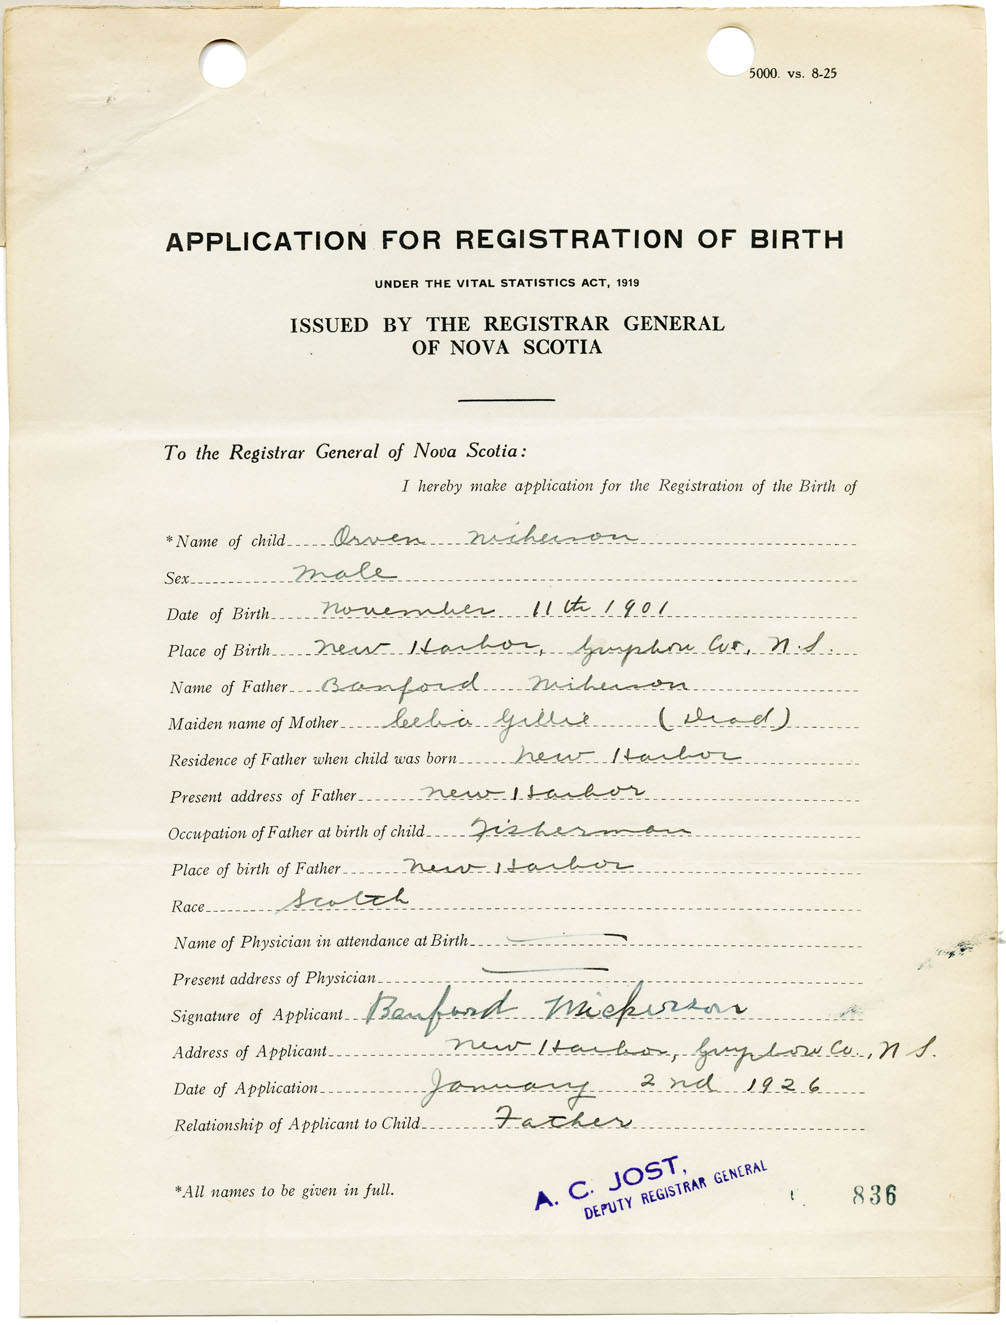 5000. vs. 8-25
APPLICATION FOR REGISTRATION OF BIRTH
UNDER THE VITAL STATISTICS ACT, 1919
ISSUED BY THE REGISTRAR GENERAL
OF NOVA SCOTIA
To the Registrar General of Nova Scotia:
I hereby make application for the Registration of the Birth of
*Name of child Orven Nickerson
Sex Male
Date of Birth November 11th 1901
Place of Birth New Harbor, Guysboro Co., N.S.
Name of Father Banford Nickerson
Maiden name of Mother Celia Gillie (Dead)
Residence of Father when child was born New Harbor
Present address of Father New Harbor
Occupation of Father at birth of child Fisherman
Place of birth of Father New Harbor
Race Scotch
Name of Physician in attendance at Birth
Present address of Physician
Signature of Applicant Banford Nickerson
Address of Applicant New Harbor, Guysboro Co., N S.
Date of Application January 2nd 1926
Relationship of Applicant to Child Father
*All names to be given in full.
A. C. JOST,
DEPUTY REGISTRAR GENERAL
836